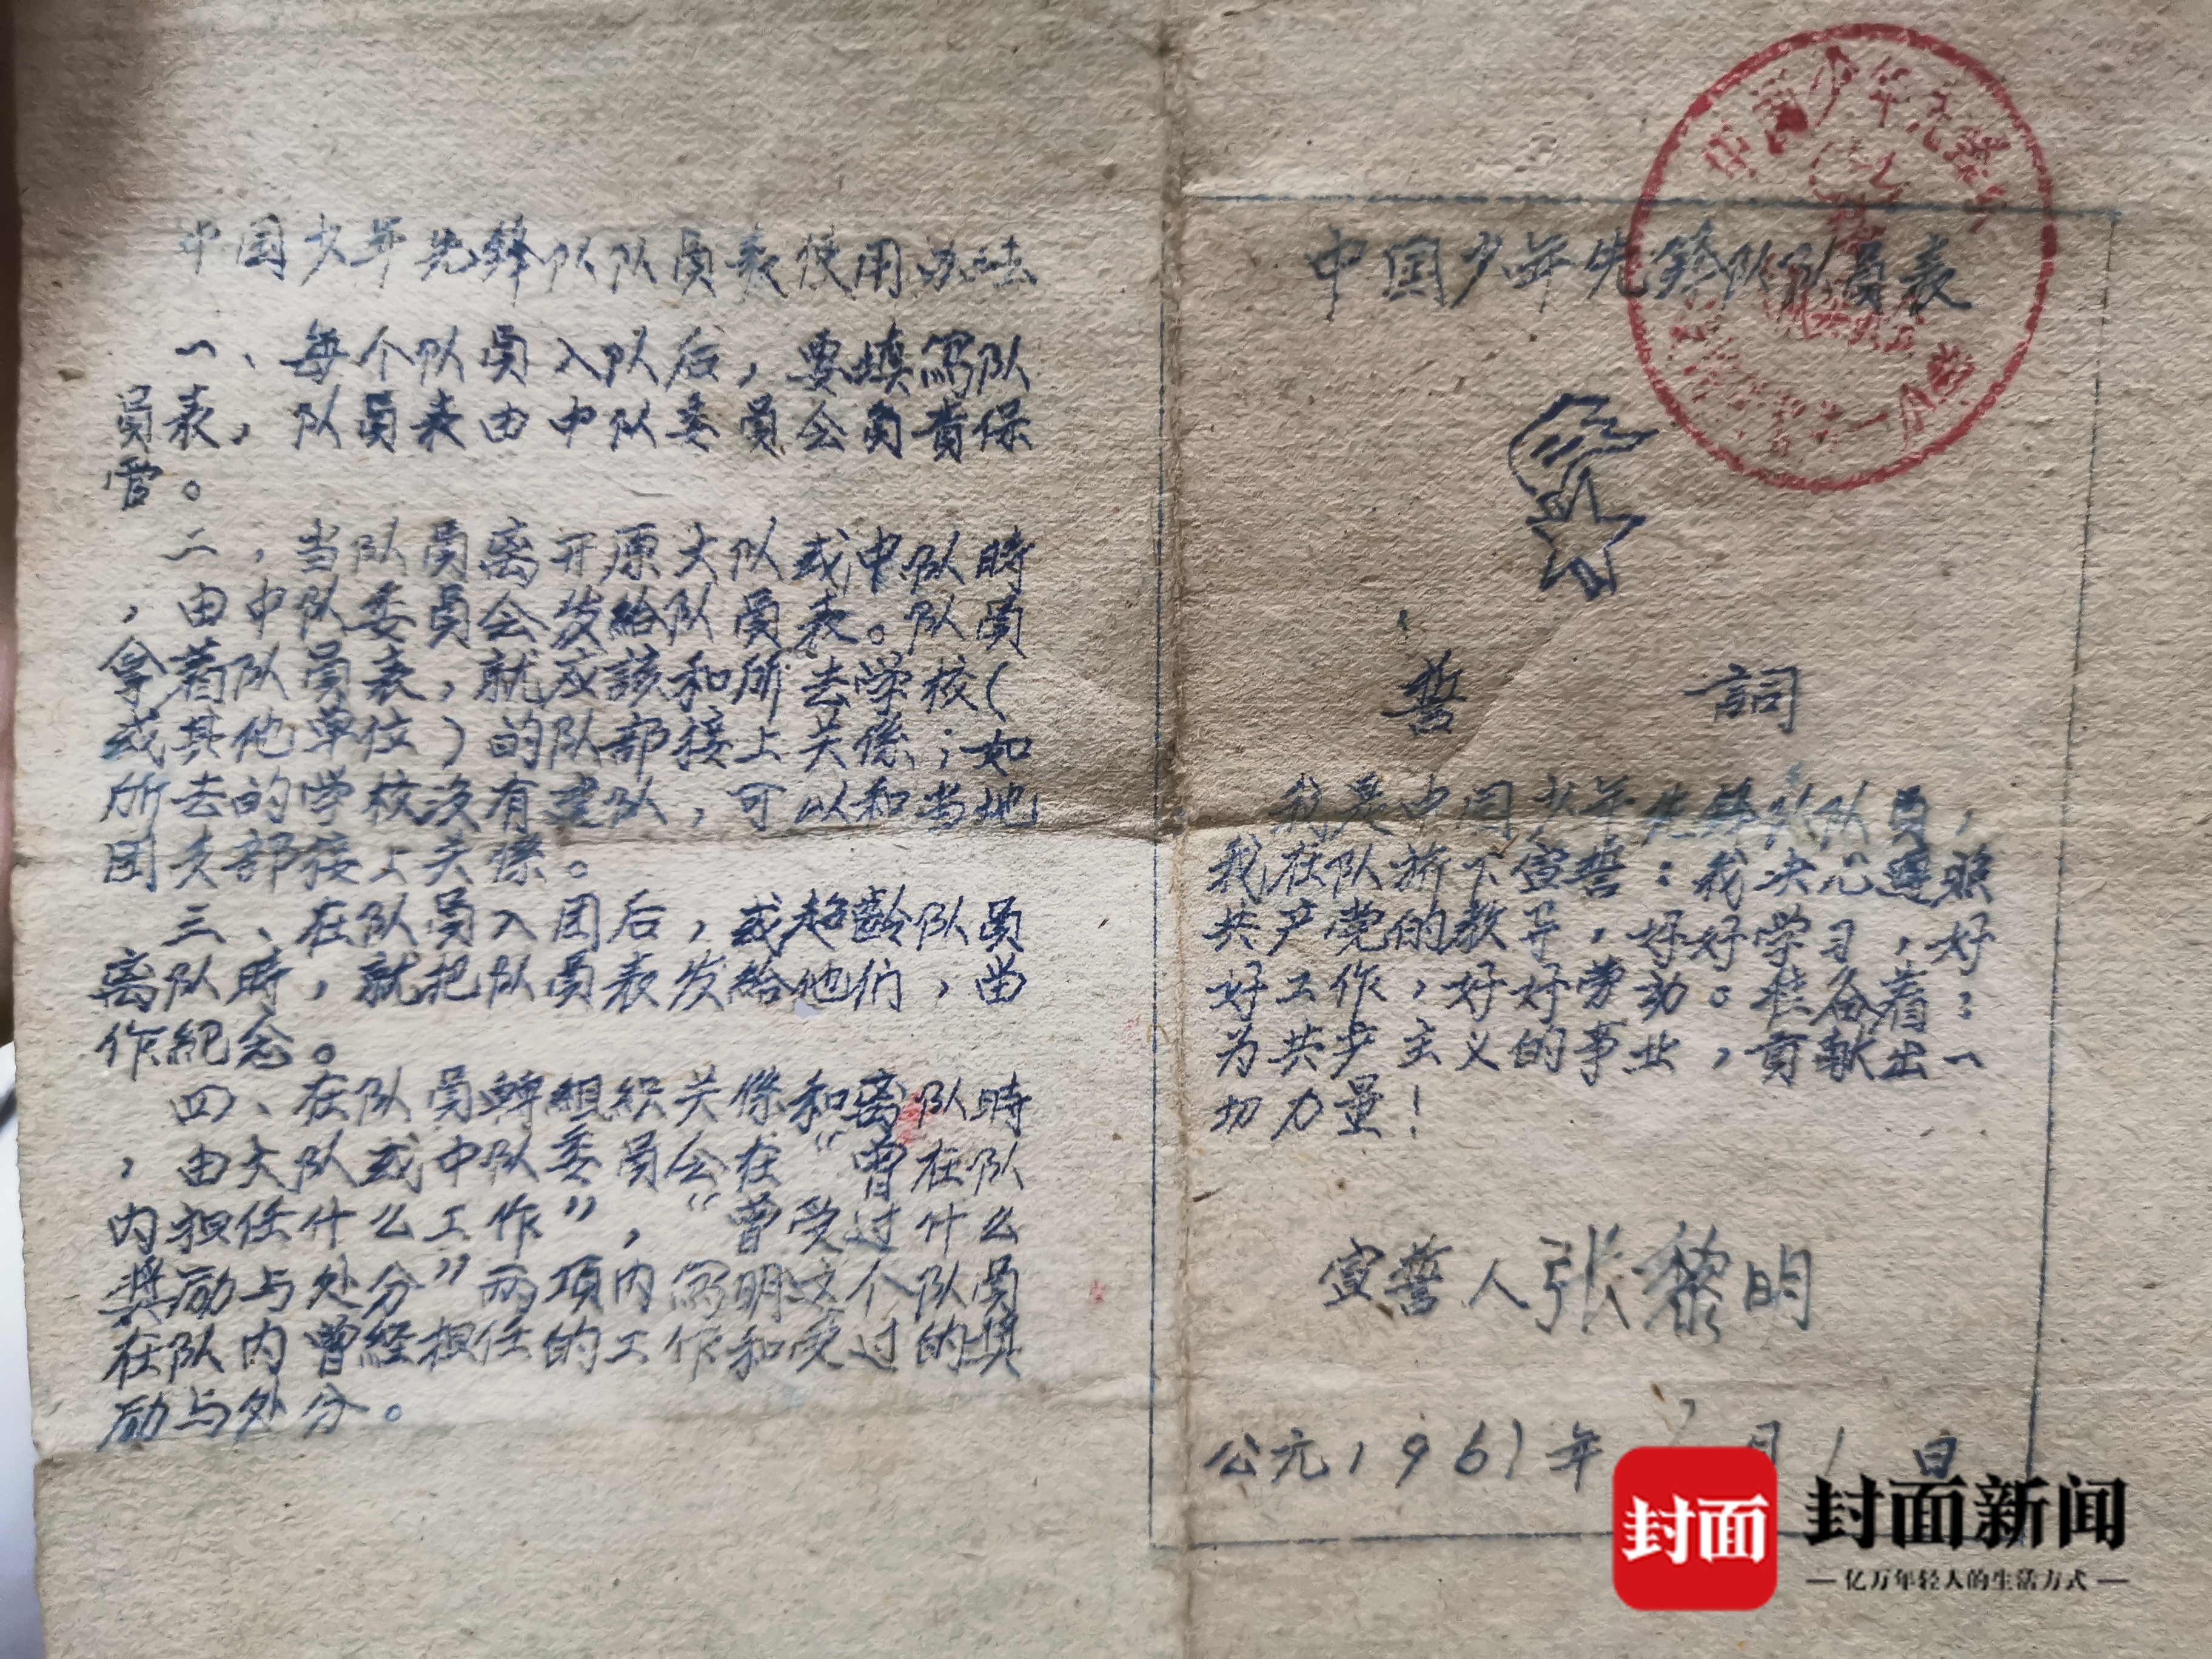 中国少年先鋒队队員表使用办法
一、每个队員入队后，要填寫队
員表，队員表由中队委員会負責保
管。
二，当队員离开原大队或中队時
，由中队委員会发給队員表。队員
拿着队員表，就应該和所去学校（
或其他单位）的队部接上关係；如
所去的学校没有建队，可以和当地
团支部接上关係。
三、在队員入团后，或超齡队員
离队時，就把队員表发給他们，当
作紀念。
四、在队員轉組織关係和离队時
，由大队或中队委員会在“曾在队
内担任什么工作”，“曾受过什么
奖励与处分”两項内寫明这个队員
在队内曾經担任的工作和受过的奖
励与处分。
中国少年先鋒队
中国少年先鋒队队員表
誓 詞
我是中国少年先鋒队队員，
我在队旂下宣誓：我决心遵照
共产党的教导，好好学习，好
好工作，好好劳动。准备着：
为共产主义的事业，貢献出一
切力量！
宣誓人 张黎明
公元1961年 月1日
封面
封面新闻
亿万年轻人的生活方式